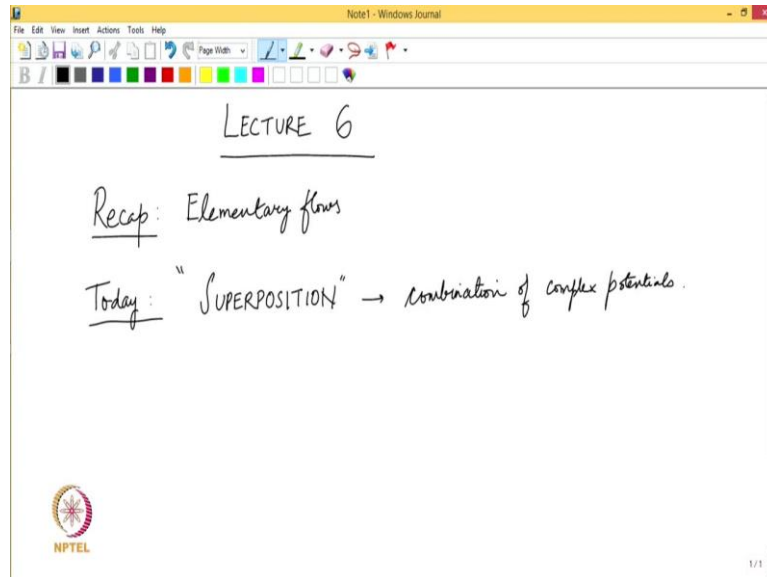 Note1 - Windows Journal
File Edit View Insert Actions Tools Help
Page Width
B I
LECTURE 6
Recap: Elementary flows
Today: "SUPERPOSITION" → combination of complex potentials.
NPTEL
1/1